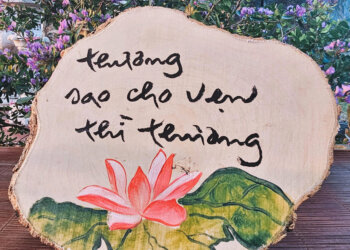 thương
sao cho vẹn
thì thương